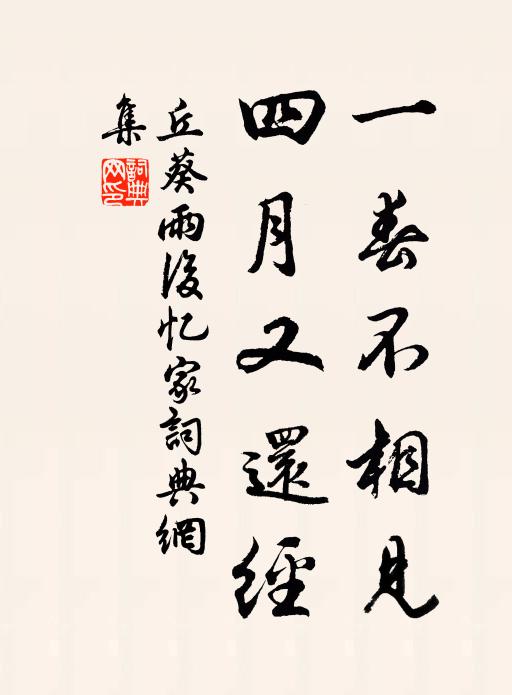 一春不相見
四月又還經
丘葵雨後忆家詞典網
集
詞典網印